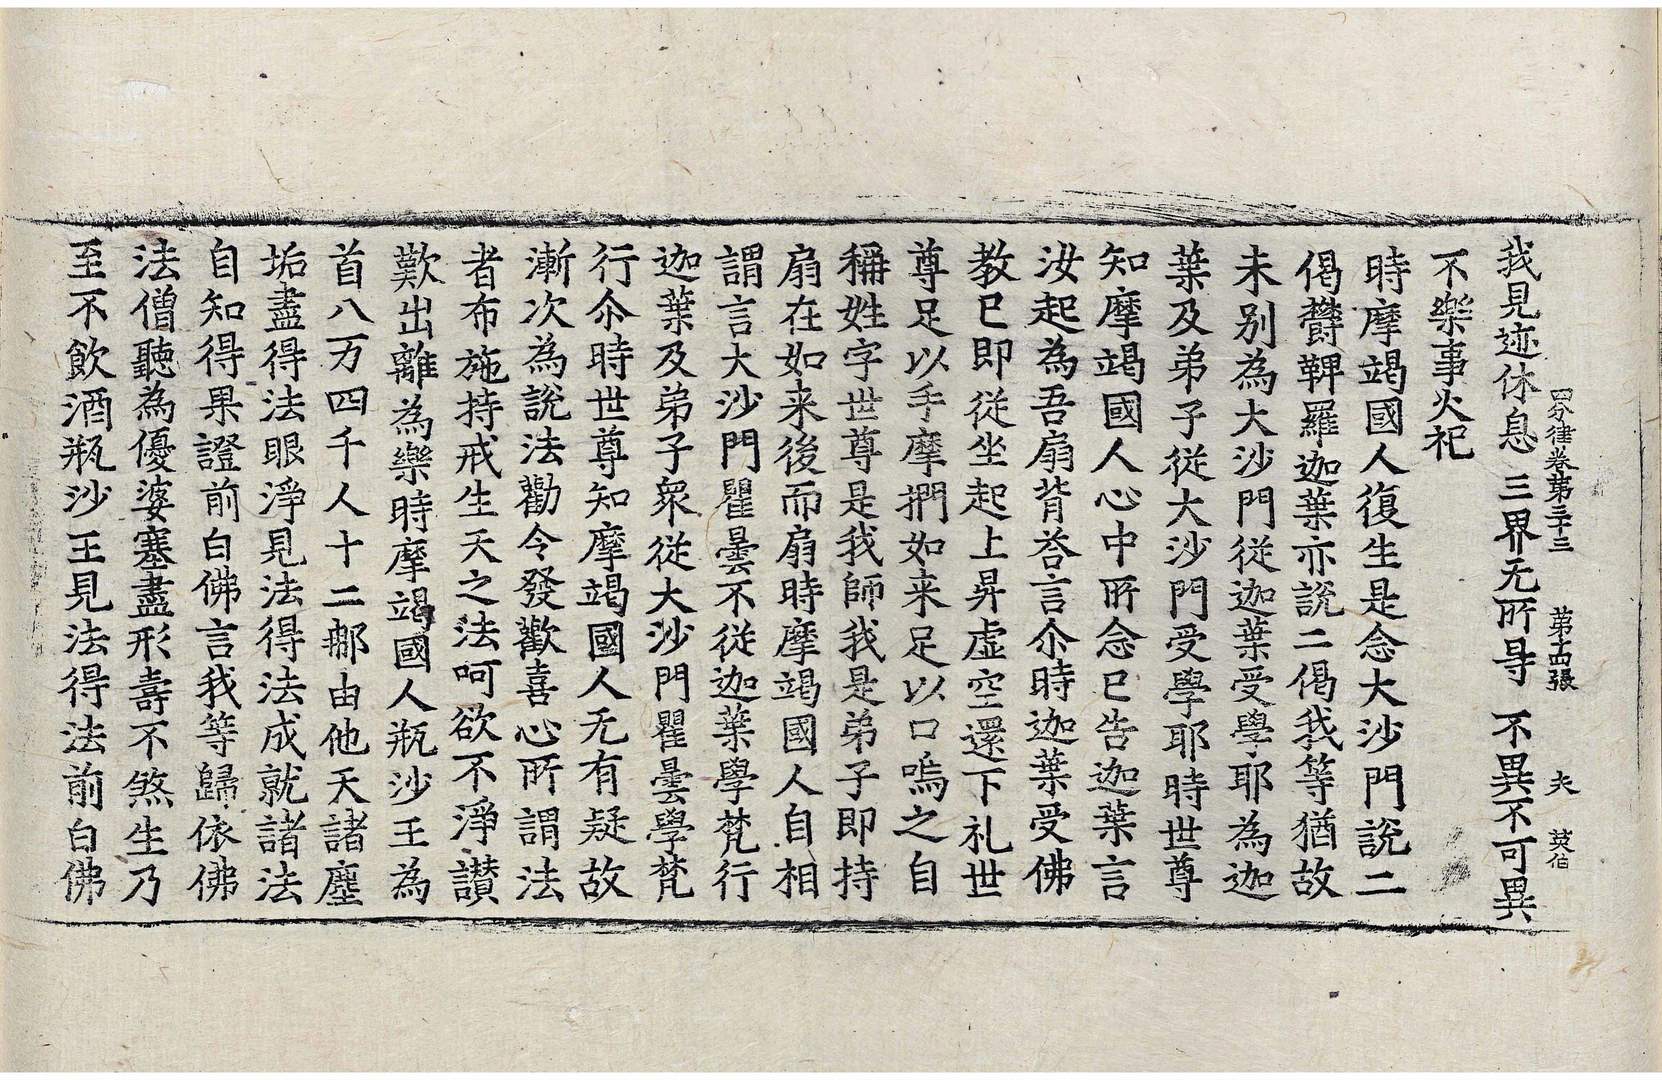 四分律卷第三十三 第十四張 夾 英伯
我見迹休息 三界无所㝵 不異不可異
不樂事火祀
時摩竭國人復生是念大沙門說二
偈欝鞞羅迦葉亦說二偈我等猶故
未别為大沙門從迦葉受學耶為迦
葉及弟子從大沙門受學耶時世尊
知摩竭國人心中所念已告迦葉言
汝起為吾扇背荅言尒時迦葉受佛
教已即從坐起上昇虛空還下礼世
尊足以手摩捫如来足以口嗚之自
稱姓字世尊是我師我是弟子即持
扇在如来後而扇時摩竭國人自相
謂言大沙門瞿曇不從迦葉學梵行
迦葉及弟子衆從大沙門瞿曇學梵
行尒時世尊知摩竭國人无有疑故
漸次為說法勸令發歡喜心所謂法
者布施持戒生天之法呵欲不淨讃
歎出離為樂時摩竭國人瓶沙王為
首八万四千人十二𨚗由他天諸塵
垢盡得法眼淨見法得法成就諸法
自知得果證前白佛言我等歸依佛
法僧聽為優婆塞盡形壽不煞生乃
至不飲酒瓶沙王見法得法前白佛